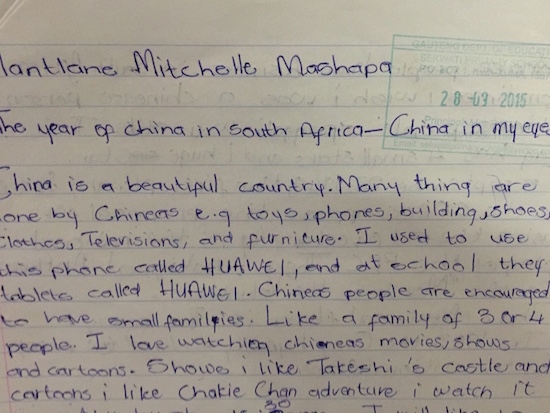 lantlane Mitchelle Mashapa
28 -09- 2015
The year of china in south Africa— China in my eye
China is a beautiful country. Many thing are
one by Chineas e.g toys, phones, building, shoes,
clothes, Televisions, and furnicure. I used to use
this phone called HUAWEI, and at school they
tablets called HUAWEI. Chineas people are encouraged
to have small familpies. Like a family of 3 or 4
people. I love watching chieneas movies, shows
and cartoons. Shows i like Takeshi's castle and
cartoons i like Chakie Chan adventure i watch it
I will